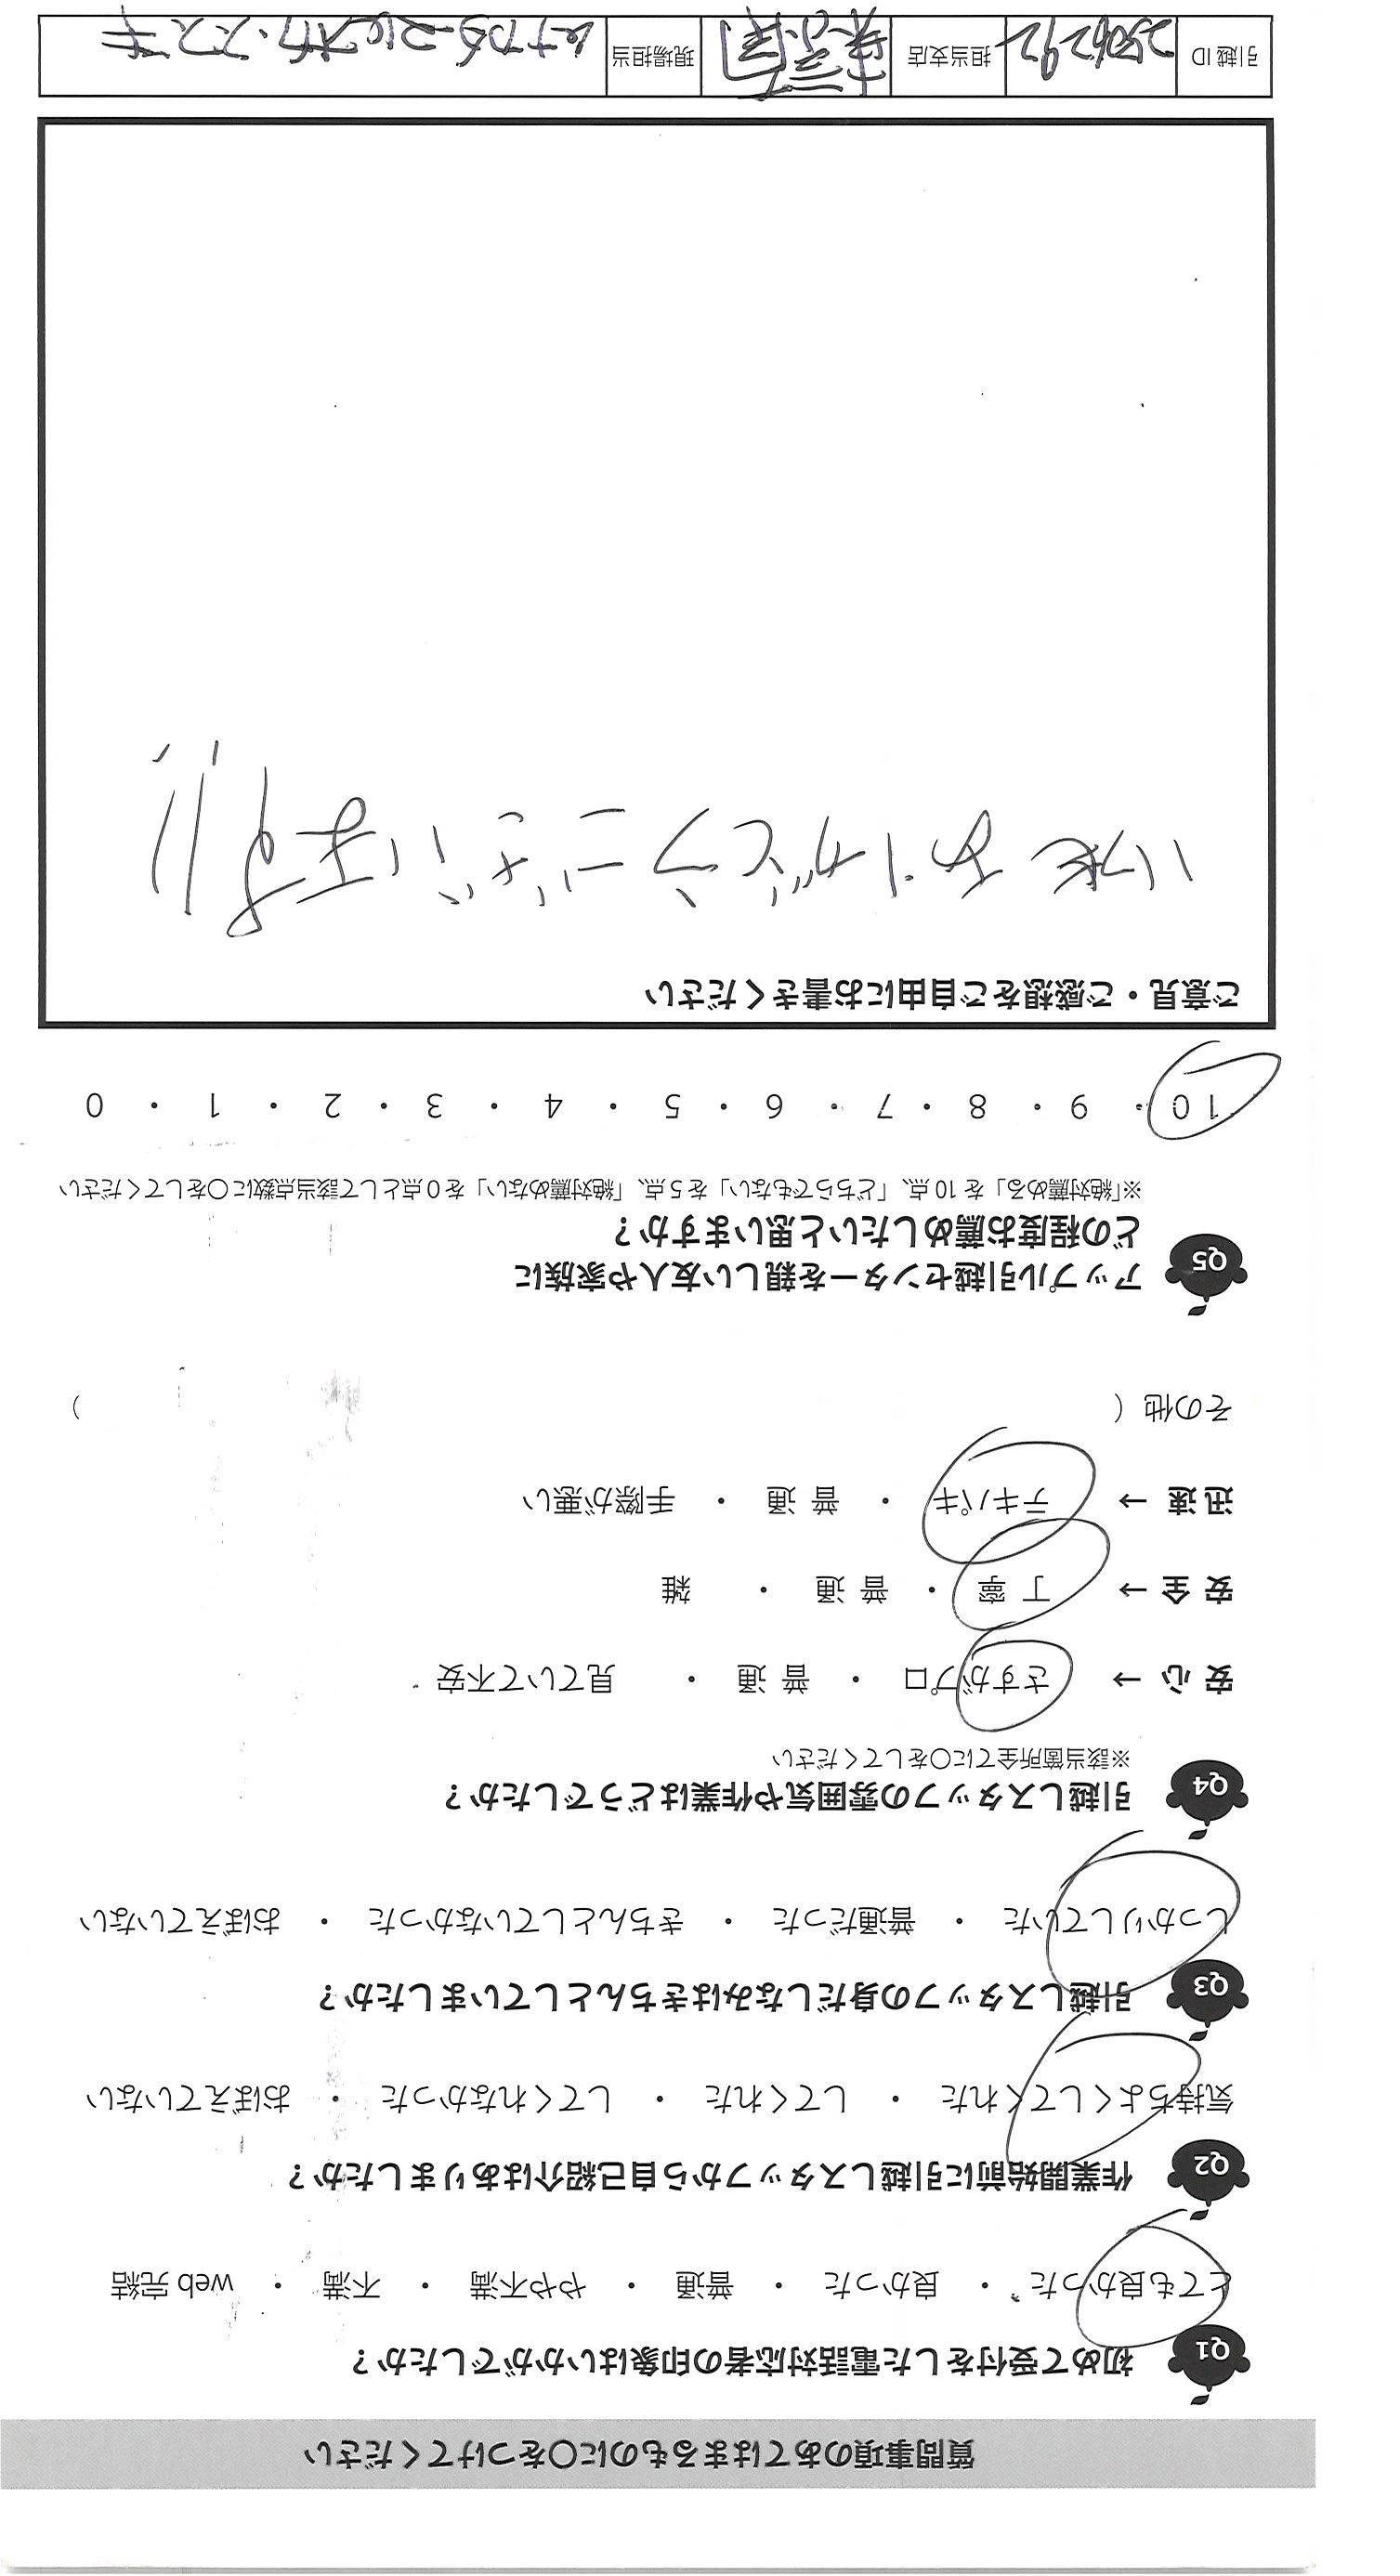 質問事項のあてはまるものに〇をつけてください
Q1 初めて受付をした電話対応者の印象はいかがでしたか？
とても良かった ・ 良かった ・ 普通 ・ やや不満 ・ 不満 ・ web 完結
Q2 作業開始前に引越しスタッフから自己紹介はありましたか？
気持ちよくしてくれた ・ してくれた ・ してくれなかった ・ おぼえていない
Q3 引越しスタッフの身だしなみはきちんとしていましたか？
しっかりしていた ・ 普通だった ・ きちんとしていなかった ・ おぼえていない
Q4 引越しスタッフの雰囲気や作業はどうでしたか？
※該当箇所全てに〇をしてください
安 心 → さすがプロ ・ 普 通 ・ 見ていて不安
安 全 → 丁 寧 ・ 普 通 ・ 雑
迅 速 → テキパキ ・ 普 通 ・ 手際が悪い
その他（ ）
Q5 アップル引越センターを親しい友人や家族に
どの程度お薦めしたいと思いますか？
※「絶対薦める」を 10 点、「どちらでもない」を 5 点、「絶対薦めない」を 0 点として該当点数に〇をしてください
10 ・ 9 ・ 8 ・ 7 ・ 6 ・ 5 ・ 4 ・ 3 ・ 2 ・ 1 ・ 0
ご意見・ご感想をご自由にお書きください
いつもありがとうございます!!
引越 ID 2506292 担当支店 現場担当